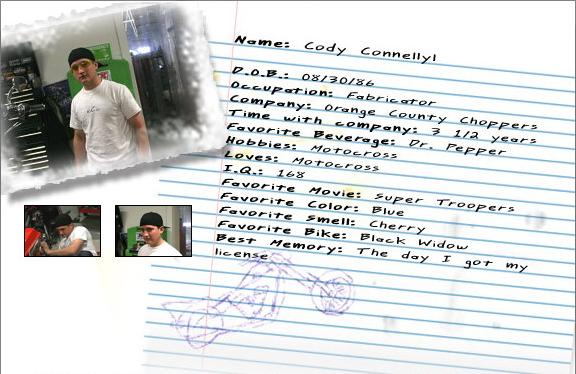 Name: Cody Connellyl
D.O.B.: 08/30/86
Occupation: Fabricator
Company: Orange County Choppers
Time with company: 3 1/2 years
Favorite Beverage: Dr. Pepper
Hobbies: Motocross
Loves: Motocross
I.Q.: 168
Favorite Movie: Super Troopers
Favorite Color: Blue
Favorite Smell: Cherry
Favorite Bike: Black Widow
Best Memory: The day I got my
license